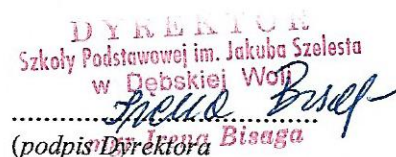 DYREKTOR
Szkoły Podstawowej im. Jakuba Szelesta
w Dębskiej Woli
Irena Bisaga
mgr Irena Bisaga
(podpis Dyrektora